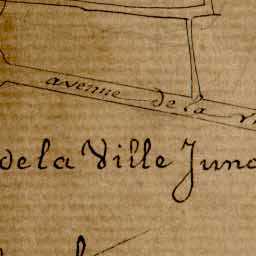 avenue de la
de la Ville